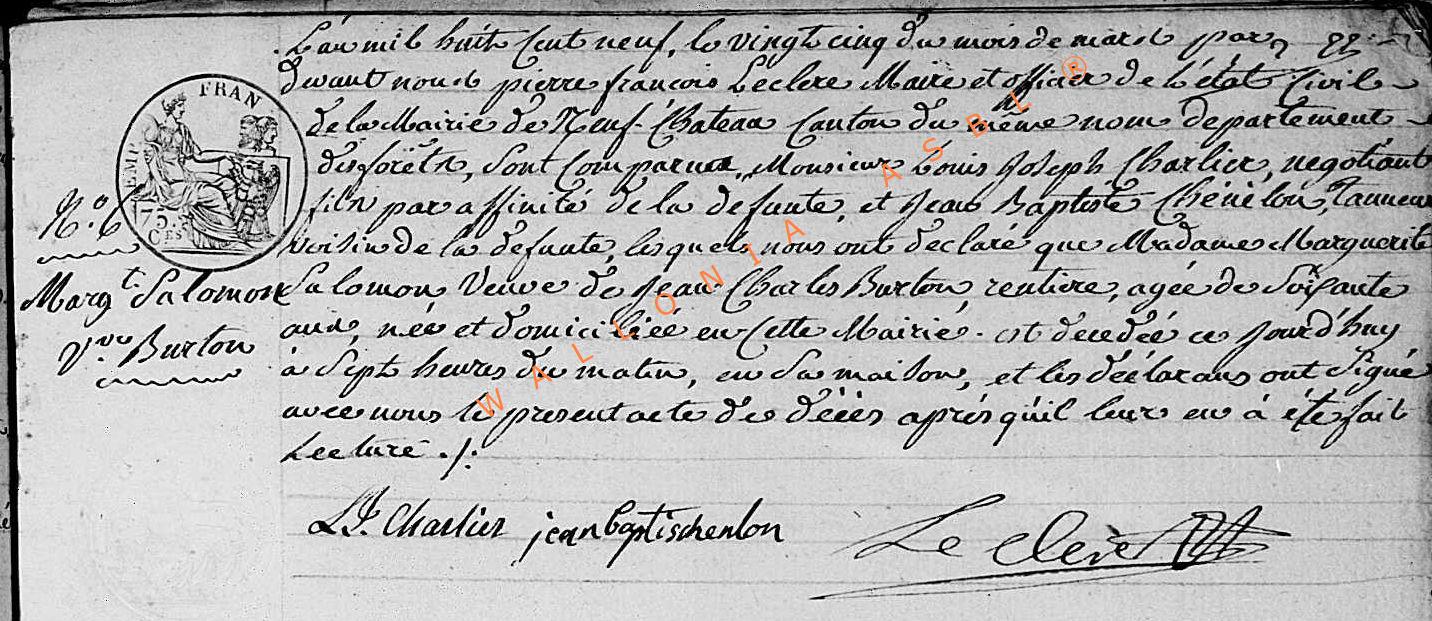 L'an mil huit Cent neuf, le vingt cinq du mois de mars par
devant nous pierre françois Leclere Maire et officier de L'état Civil
de la Mairie de Neuf-Chateau Canton du même nom departement
des forêts, Sont Comparus, Monsieur Louis Joseph Charlier, negotiant
fils par affinité de la defunte, et Jean Baptiste Chénélon, Tanneur
voisin de la defunte, lesquels nous ont declaré que Madame Marguerite
Salomon, Veuve de Jean Charles Burton, rentiere, agée de Soixante
ans, née et domiciliéé en Cette Mairie. est decedéé ce Jourd'huy
à Sept heures du matin, en Sa maison, et les déclarans ont Signé
avec nous le present acte de décès aprés qu'il leur en à été fait
Lecture ./.
N.o 6
Marg.t Salomon
V.ve Burton
FRAN
EMP
75
CES
L J. Charlier jean baptis chenlon Le clere
WALLONIA ASBL ®